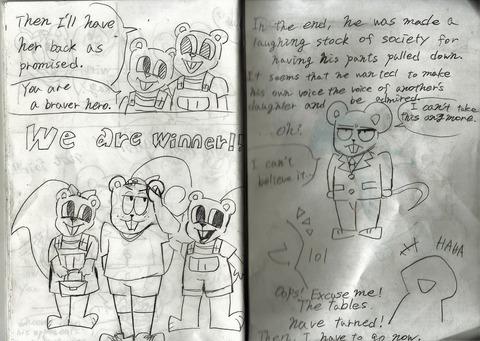 Then I'll have
her back as
promised.
You are
a braver hero.
We are winner!!
In the end, he was made a
laughing stock of society for
having his pants pulled down.
It seems that he wanted to make
his own voice the voice of another's
daughter and be admired.
I can't take
this anymore.
Oh!
I can't
believe it.
lol
HAHA
Oops! Excuse me!
The tables
have turned!
Then, I have to go now.